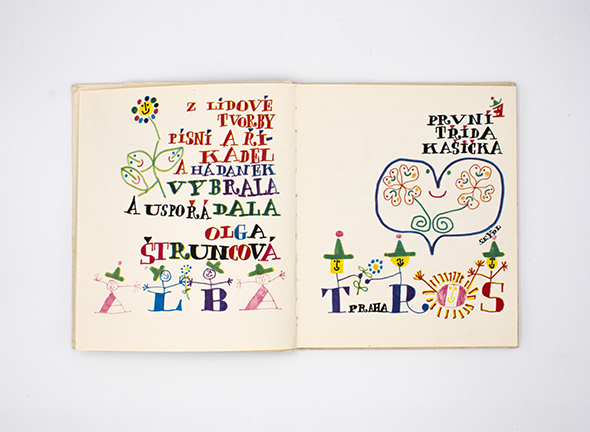 Z LIDOVÉ
TVORBY
PÍSNÍ A ŘÍ-
KADEL
A HÁDANEK
VYBRALA
A USPOŘÁDALA
OLGA
ŠTRUNCOVÁ
ALBA
PRVNÍ
TŘÍDA
KAŠIČKA
SKÝPL
TROS
PRAHA